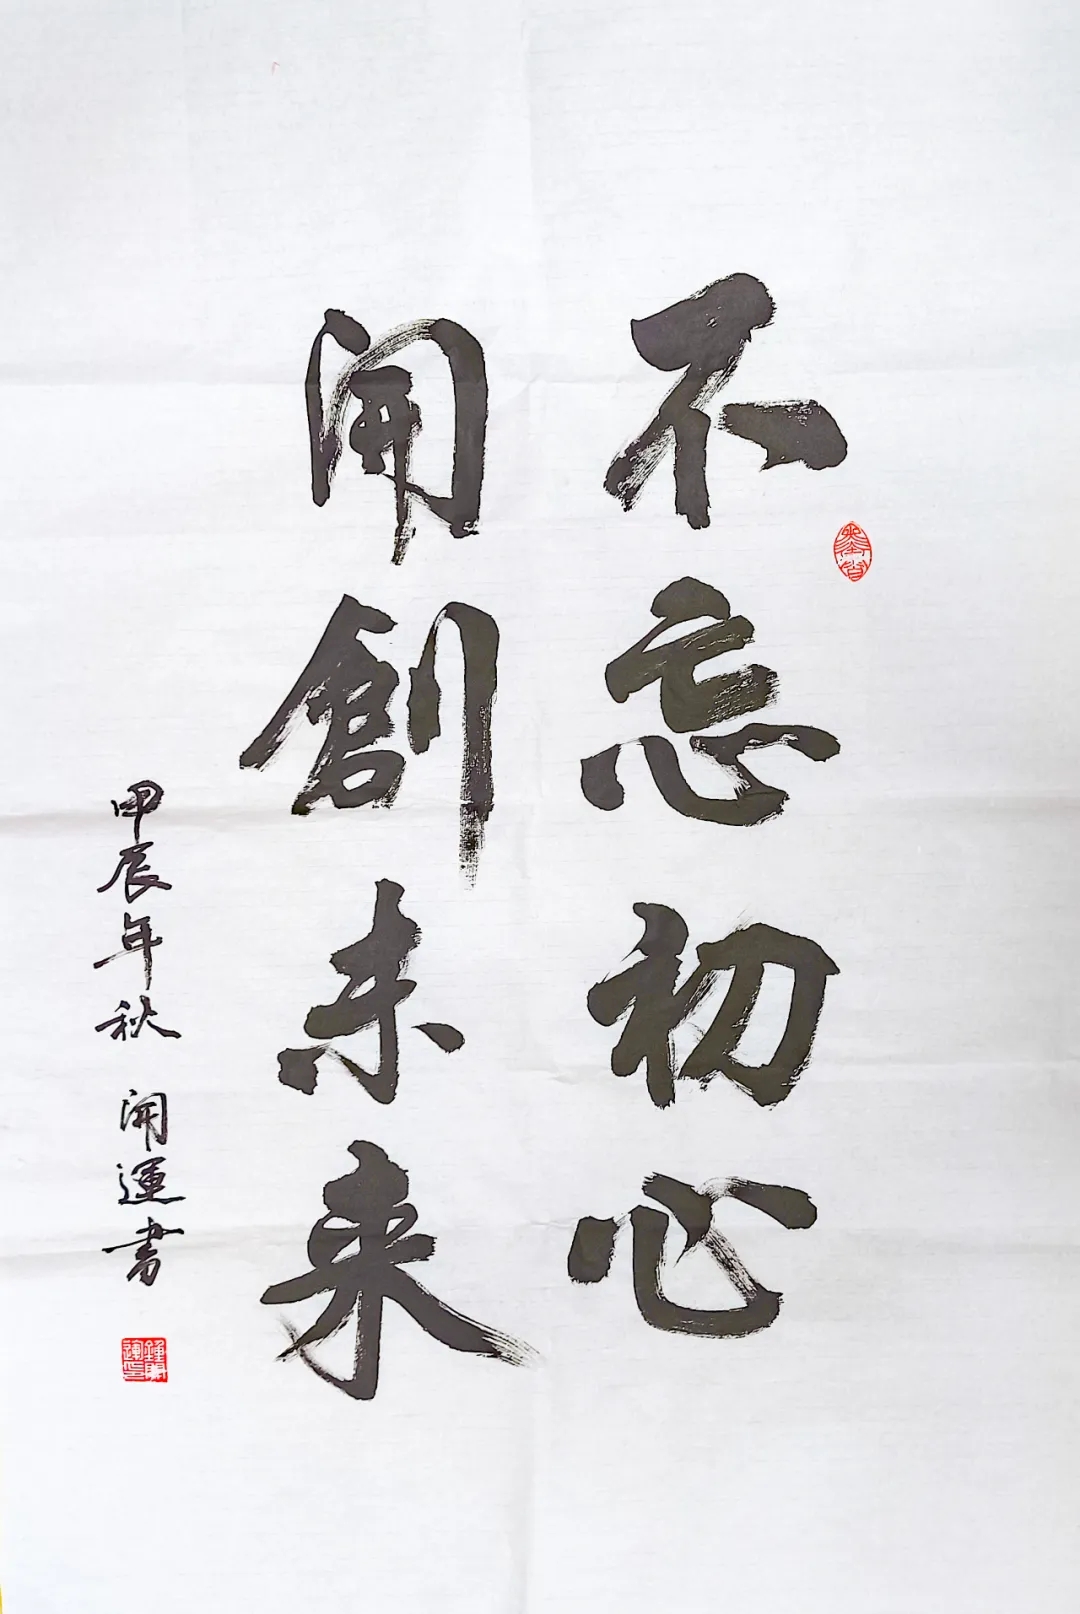 不忘初心
開創未来
甲辰年秋 開運書